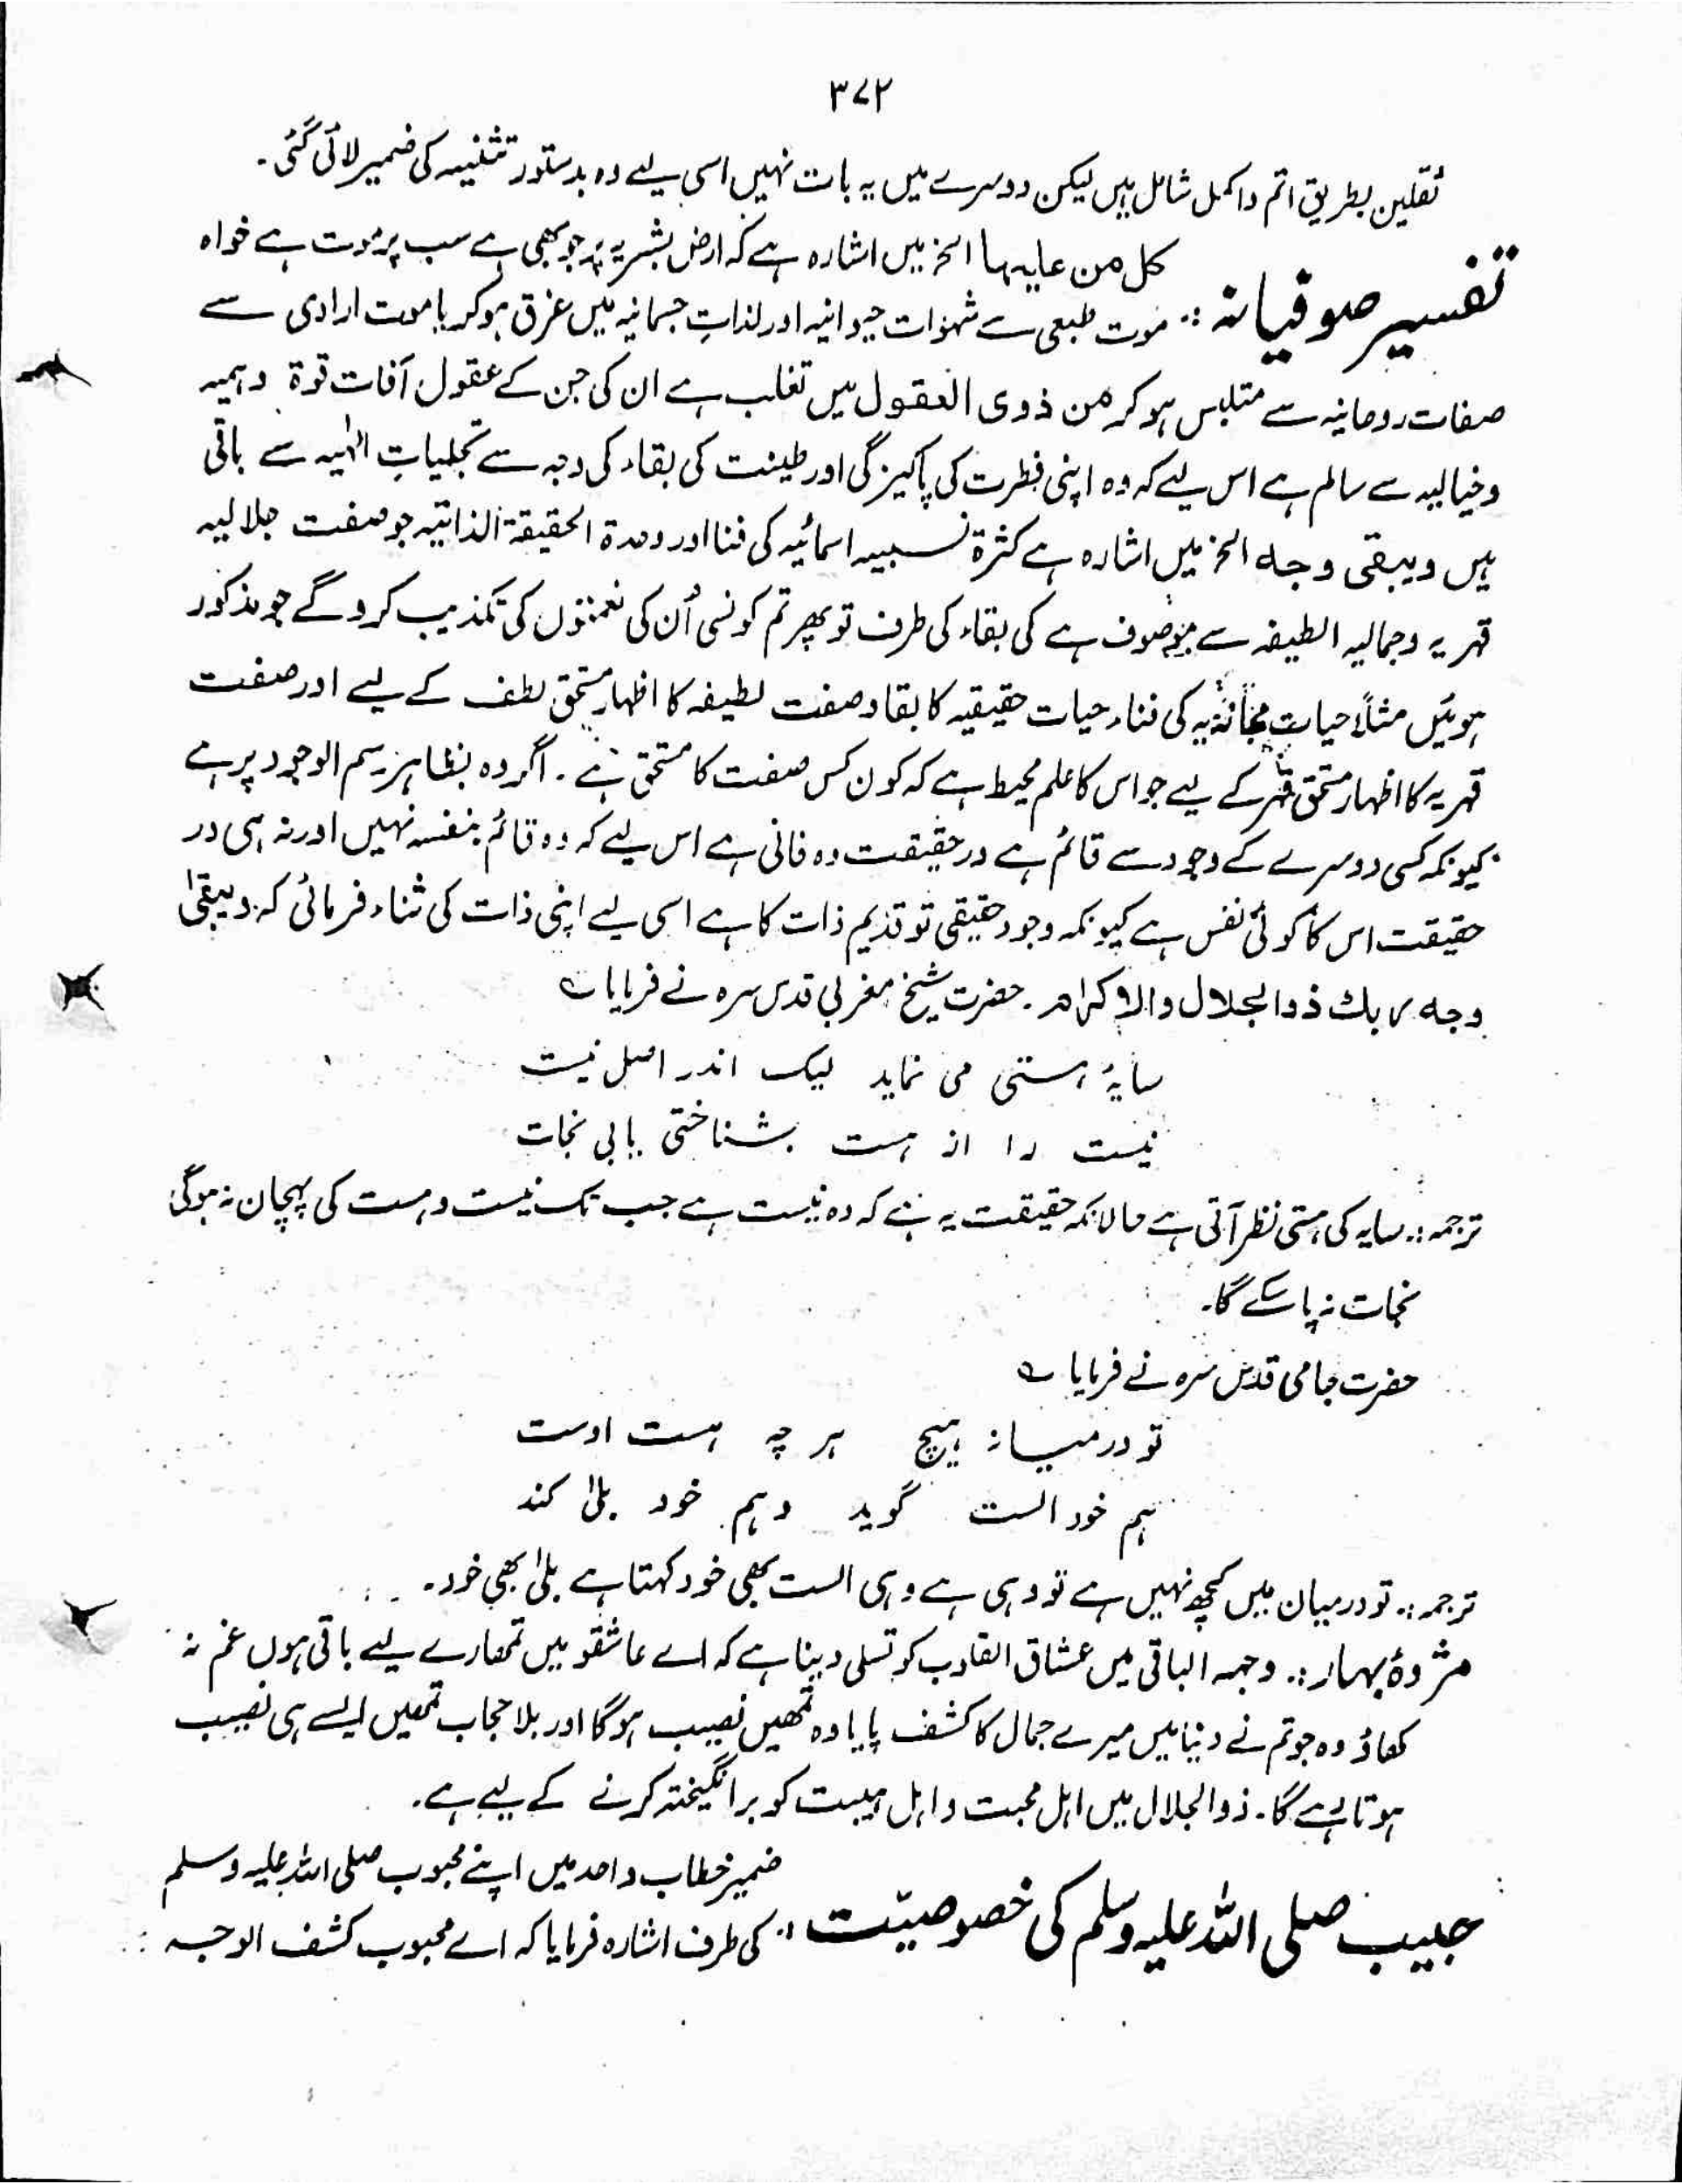 ۳۷۲
ثقلین بطریق اتم و اکمل شامل ہیں لیکن دوسرے میں یہ بات نہیں اسی لیے وہ بدستور تثنیہ کی ضمیر لائی گئی۔
تفسیر صوفیانہ :: کل من علیہا الخ میں اشارہ ہے کہ ارض بشریہ پر جو بھی ہے سب پر موت ہے خواہ
موت طبعی سے شہوات حیوانیہ اور لذاتِ جسمانیہ میں غرق ہوکر یا موت ارادی سے
صفات روحانیہ سے متلبس ہو کر من ذوی العقول میں تغلب ہے ان کی جن کے عقول آفات قوۃ وہمیہ
وخیالیہ سے سالم ہے اس لیے کہ وہ اپنی فطرت کی پاکیزگی اور طینت کی بقاء کی وجہ سے تجلیاتِ الٰہیہ سے باقی
ہیں ویبقی وجہ الخ میں اشارہ ہے کثرۃ نسبیہ اسمائیہ کی فنا اور وحدۃ الحقیقۃ الذاتیہ جو صفت جلالیہ
قہریہ وجمالیہ الطیفہ سے موصوف ہے کی بقاء کی طرف تو پھر تم کونسی اُن کی نعمتوں کی تکذیب کروگے جو مذکور
ہوئیں مثلاً حیات مجازیہ کی فناء حیات حقیقیہ کا بقا و صفت لطیفہ کا اظہار مستحق لطف کے لیے اور صفت
قہریہ کا اظہار مستحق قہر کے لیے جو اس کا علم محیط ہے کہ کون کس صفت کا مستحق ہے۔ اگر وہ بظاہر رسم الوجود پر ہے
کیونکہ کسی دوسرے کے وجود سے قائم ہے در حقیقت وہ فانی ہے اس لیے کہ وہ قائم بنفسہ نہیں اور نہ ہی در
حقیقت اس کا کوئی نفس ہے کیونکہ وجود حقیقی تو قدیم ذات کا ہے اسی لیے اپنی ذات کی ثناء فرمائی کہ ویبقیٰ
وجہ ربك ذوالجلال والاکرام۔ حضرت شیخ مغربی قدس سرہ نے فرمایا ؎
سایۂ ہستی می نماید لیک اندر اصل نیست
نیست را از ہست بشناختی یابی نجات
ترجمہ :۔ سایہ کی ہستی نظر آتی ہے حالانکہ حقیقت یہ ہے کہ وہ نیست ہے جب تک نیست و ہست کی پہچان نہ ہوگی
نجات نہ پا سکے گا۔
حضرت جامی قدس سرہ نے فرمایا ؎
تو درمیانہ ہیچ ہر چہ ہست اوست
ہم خود الست گوید وہم خود بلیٰ کند
ترجمہ :۔ تو درمیان میں کچھ نہیں ہے تو وہی ہے وہی الست بھی خود کہتا ہے بلیٰ بھی خود۔
مژدۂ بہار :۔ وجہہ الباقی میں عشاق القلوب کو تسلی دینا ہے کہ اے عاشقو میں تمھارے لیے باقی ہوں غم نہ
کھاؤ وہ جو تم نے دنیا میں میرے جمال کا کشف پایا وہ تمھیں نصیب ہوگا اور بلا حجاب تمھیں ایسے ہی نصیب
ہوتا رہے گا۔ ذوالجلال میں اہل محبت و اہل ہیبت کو برانگیختہ کرنے کے لیے ہے۔
حبیب صلی اللہ علیہ وسلم کی خصوصیّت :: ضمیر خطاب واحد میں اپنے محبوب صلی اللہ علیہ وسلم
کی طرف اشارہ فرمایا کہ اے محبوب کشف الوجہ